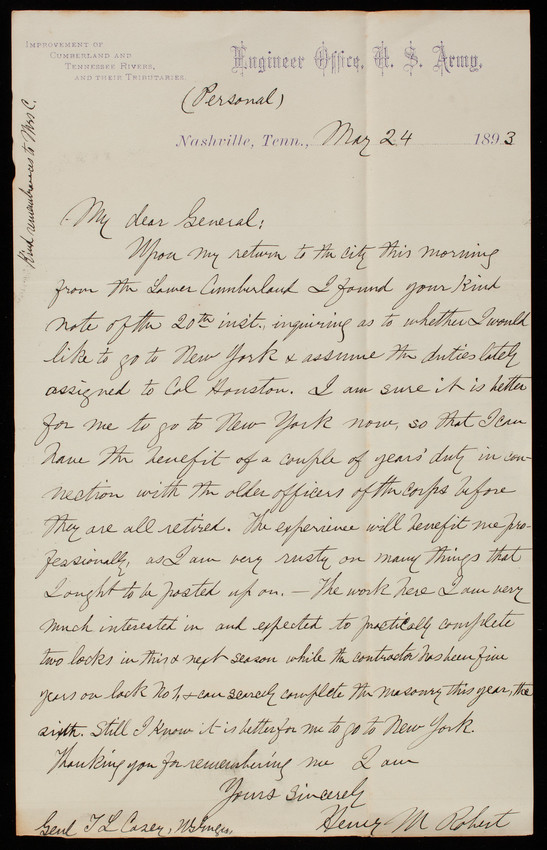 IMPROVEMENT OF
CUMBERLAND AND
TENNESSEE RIVERS,
AND THEIR TRIBUTARIES.
Engineer Office, U. S. Army,
(Personal)
Nashville, Tenn., May 24 1893
Kind remembrances to Mrs C.
My dear General:
Upon my return to the city this morning
from the Lower Cumberland I found your kind
note of the 20th inst., inquiring as to whether I would
like to go to New York & assume the duties lately
assigned to Col Houston. I am sure it is better
for me to go to New York now, so that I can
have the benefit of a couple of years' duty in con-
nection with the older officers of the corps before
they are all retired. The experience will benefit me pro-
fessionally, as I am very rusty on many things that
I ought to be posted up on. — The work here I am very
much interested in and expected to practically complete
two locks in this & next season while the contractor has been five
years on lock No 1, & can scarcely complete the masonry this year, the
sixth. Still I know it is better for me to go to New York.
Thanking you for remembering me I am
Yours Sincerely
Henry M Robert
Genl T L Casey,